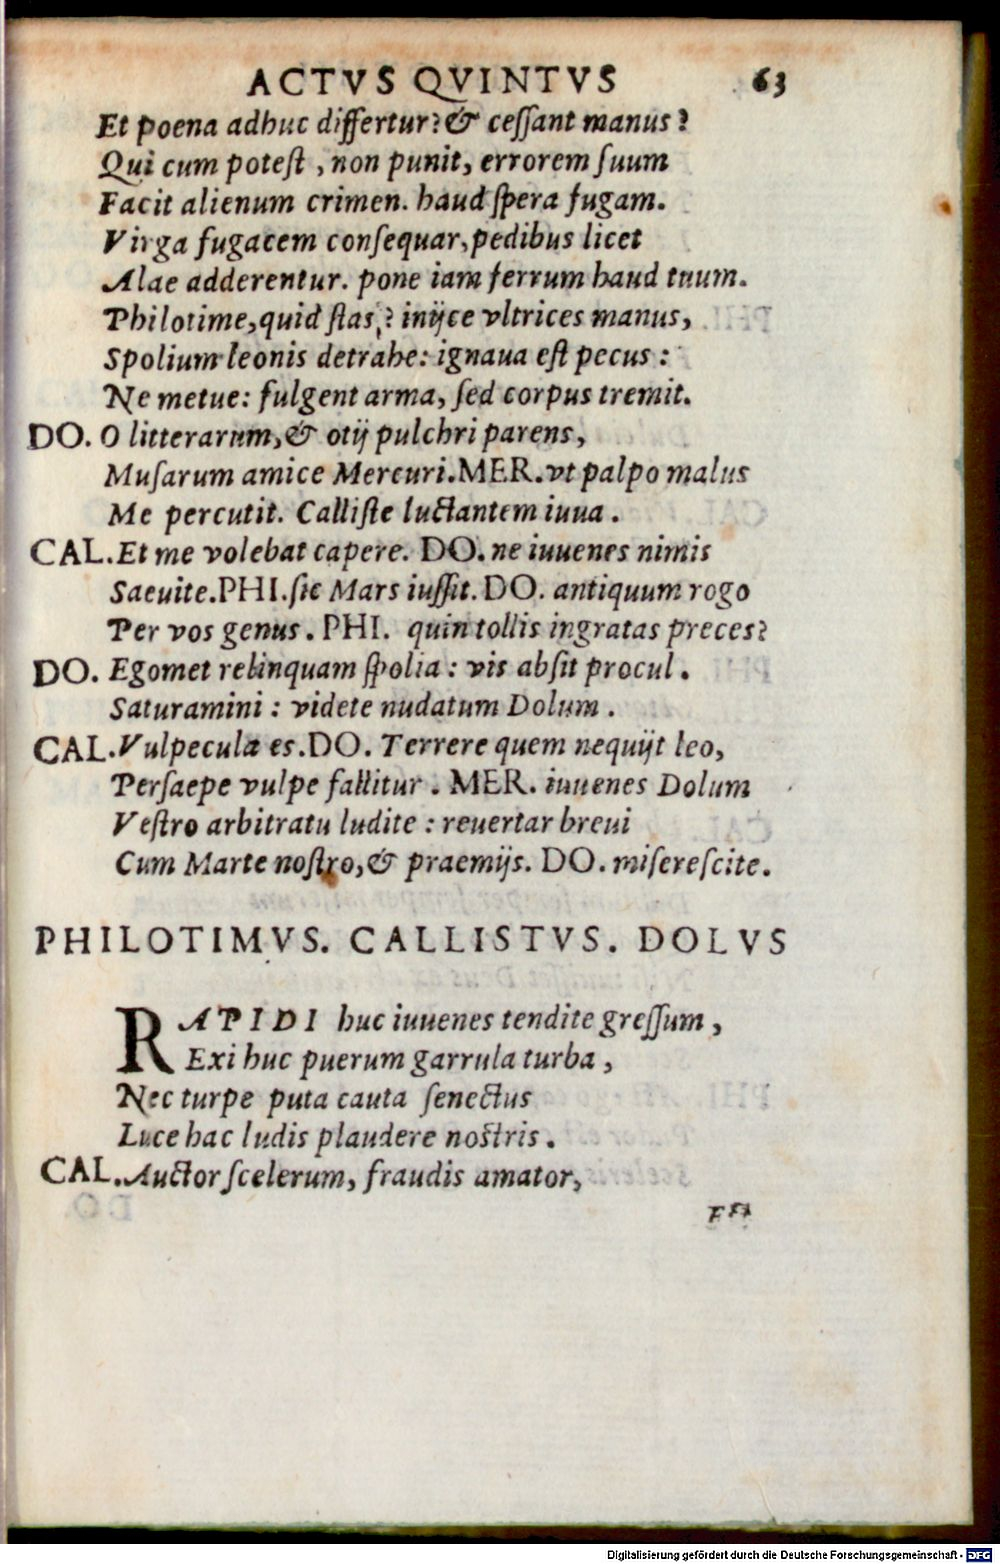 ACTVS QVINTVS 63
Et poena adhuc differtur? & cessant manus?
Qui cum potest, non punit, errorem suum
Facit alienum crimen. haud spera fugam.
Virga fugacem consequar, pedibus licet
Alae adderentur. pone iam ferrum haud tuum.
Philotime, quid stas? inijce vltrices manus,
Spolium leonis detrahe: ignaua est pecus:
Ne metue: fulgent arma, sed corpus tremit.
DO. O litterarum, & otij pulchri parens,
Musarum amice Mercuri. MER. vt palpo malus
Me percutit. Calliste luctantem iuua.
CAL. Et me volebat capere. DO. ne iuuenes nimis
Saeuite. PHI. sic Mars iussit. DO. antiquum rogo
Per vos genus. PHI. quin tollis ingratas preces?
DO. Egomet relinquam spolia: vis absit procul.
Saturamini: videte nudatum Dolum.
CAL. Vulpecula es. DO. Terrere quem nequijt leo,
Persaepe vulpe fallitur. MER. iuuenes Dolum
Vestro arbitratu ludite: reuertar breui
Cum Marte nostro, & praemijs. DO. miserescite.
PHILOTIMVS. CALLISTVS. DOLVS
RAPIDI huc iuuenes tendite gressum,
Exi huc puerum garrula turba,
Nec turpe puta cauta senectus
Luce hac ludis plaudere nostris.
CAL. Auctor scelerum, fraudis amator,
Digitalisierung gefördert durch die Deutsche Forschungsgemeinschaft - DFG